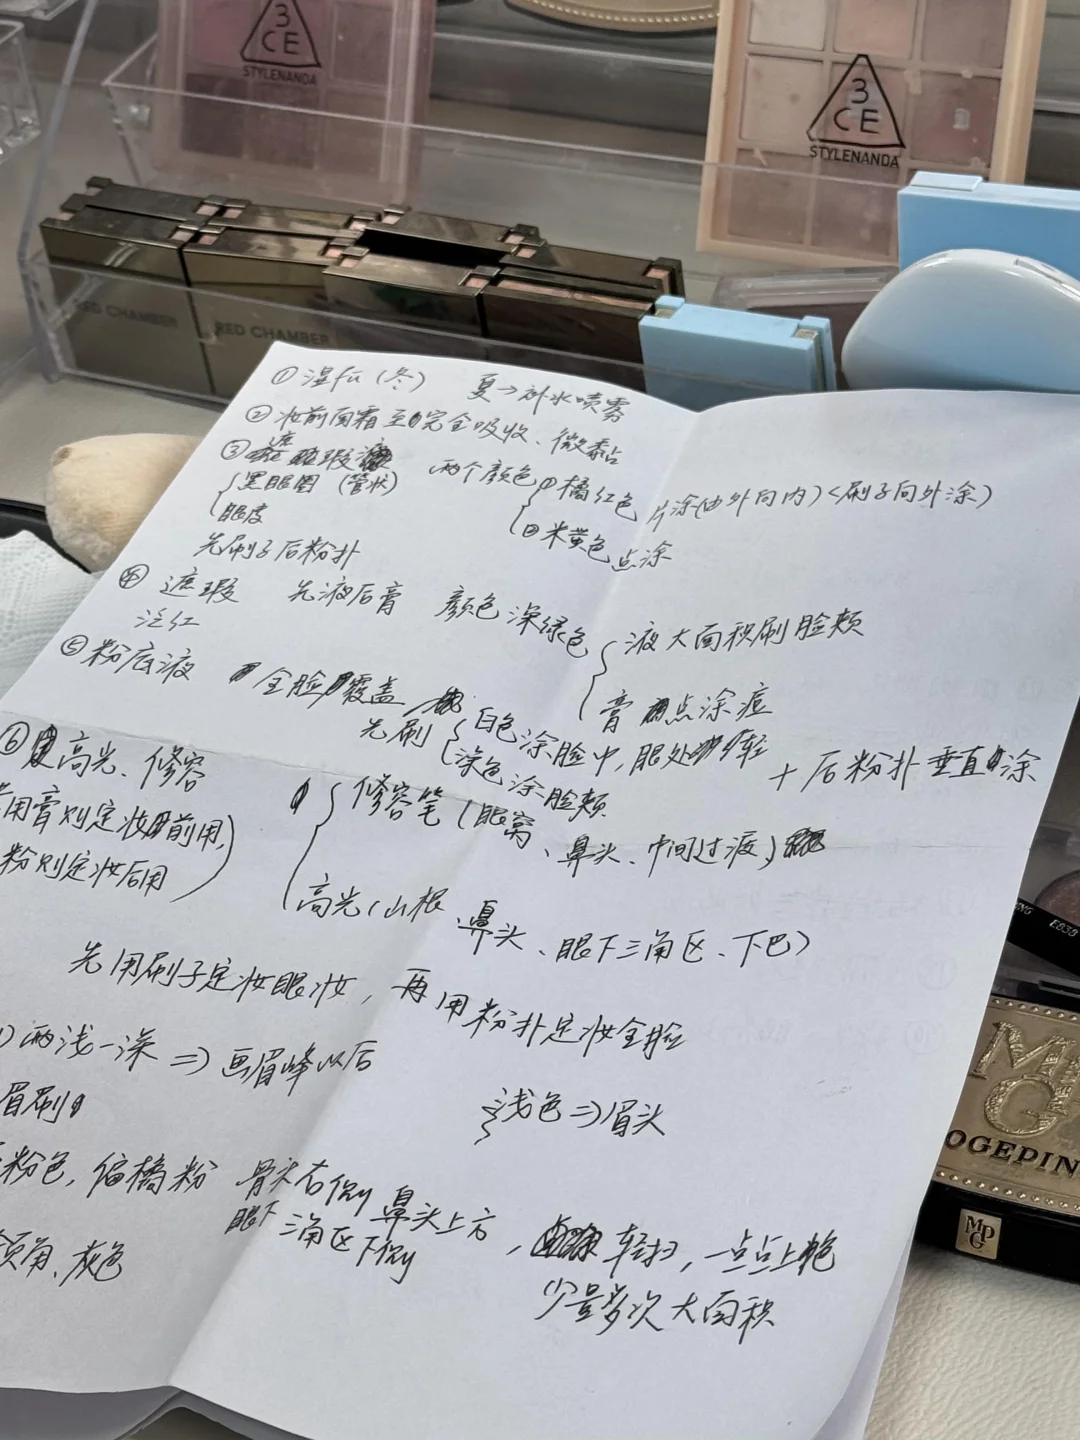 3
CE
STYLENANDA
3
CE
STYLENANDA
RED CHAMBER
RED CHAMBER
①湿fu(冬) 夏→补水喷雾
②妆前面霜至完全吸收、微黏
③遮瑕 两个颜色 ①橘红色 片涂(由外向内)<刷子向外涂)
黑眼圈(管状) ②米黄色点涂
眼皮
先刷子后粉扑
④遮瑕 先液后膏 颜色深绿色 液大面积刷脸颊
泛红 膏点涂痘
⑤粉底液 全脸覆盖
先刷 白色涂脸中,眼处轻 +后粉扑垂直涂
深色涂脸颊
⑥高光、修容 修容笔(眼窝、鼻头、中间过渡)
用膏则定妆前用,
粉则定妆后用)
高光(山根、鼻头、眼下三角区、下巴)
先用刷子定妆眼妆,再用粉扑定妆全脸
两浅一深⇒画眉峰以后
眉刷 浅色⇒眉头
粉色,偏橘粉 骨头右侧 鼻头上方,轻扫,一点点上艳
眼下三角区下侧
角、灰色 少量多次大面积
E030
MG
OGEPIN
MPG